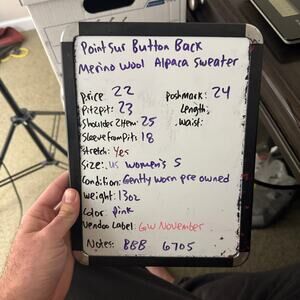 Point Sur Button Back
Merino Wool Alpaca Sweater
price: 22 poshmark: 24
Pit2pit: 23 Length:
Shoulder2Hem: 25 Waist:
Sleeve from Pit: 18
Stretch: Yes
Size: US Women's S
Condition: Gently worn pre owned
Weight: 13oz
Color: pink
Vendoo Label: GW November
Notes: BBB 6705